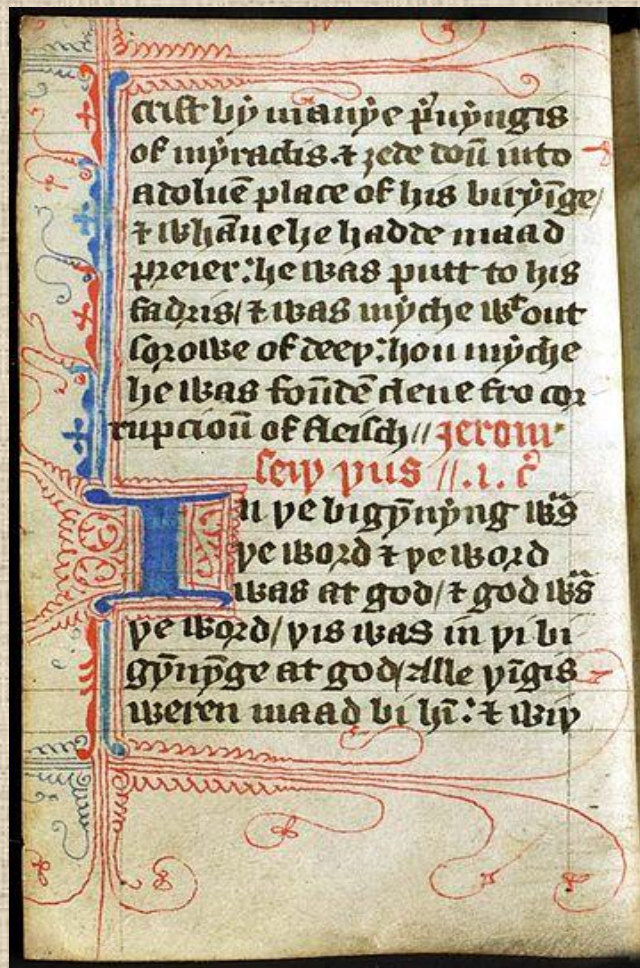 crist bẏ manẏe p̉uẏngis
of mẏraclis. ⁊ ȝede doū into
a doluē place of his birẏīge/
⁊ whāne he hadde maad
preier: he was putt to his
fadris/ ⁊ was mẏche wᵗout
sorowe of deeþ: hou mẏche
he was foūde clene fro cor
rupcioū of fleisch// Jerom
seiþ þus //.i. c̄
In þe bigẏnẏng wᵃs
þe word ⁊ þe word
was at god/ ⁊ god wᵃs
þe word/ þis was in þi bi
gẏnẏ̄ge at god/ Alle þīgis
weren maad bi hī: ⁊ wiþ